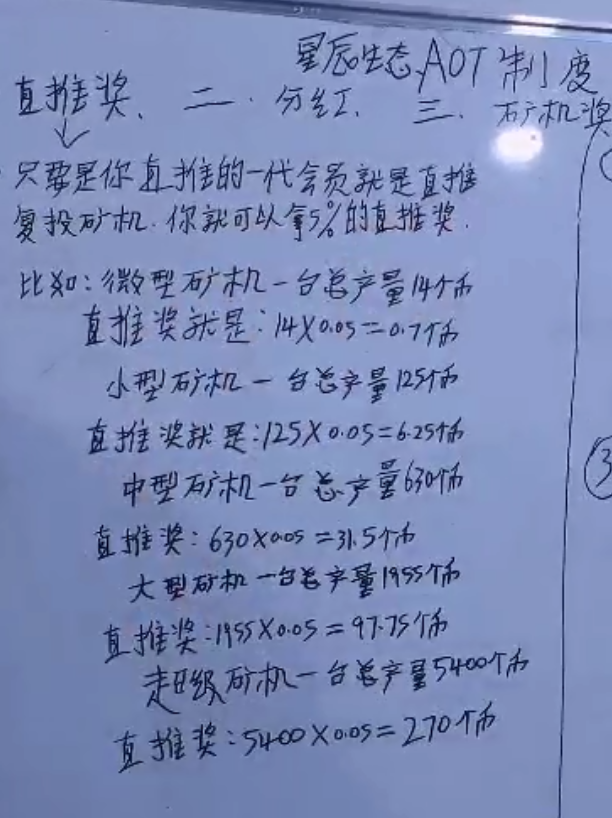 星辰生态AOT制度
直推奖、二、分红、三、矿机奖
只要是你直推的一代会员就是直推
复投矿机.你就可以拿5%的直推奖.
比如:微型矿机一台总产量14个币
直推奖就是:14X0.05=0.7个币
小型矿机一台总产量125个币
直推奖就是:125X0.05=6.25个币
中型矿机一台总产量630个币
直推奖:630X0.05=31.5个币
大型矿机一台总产量1955个币
直推奖:1955X0.05=97.75个币
超级矿机一台总产量5400个币
直推奖:5400X0.05=270个币
③